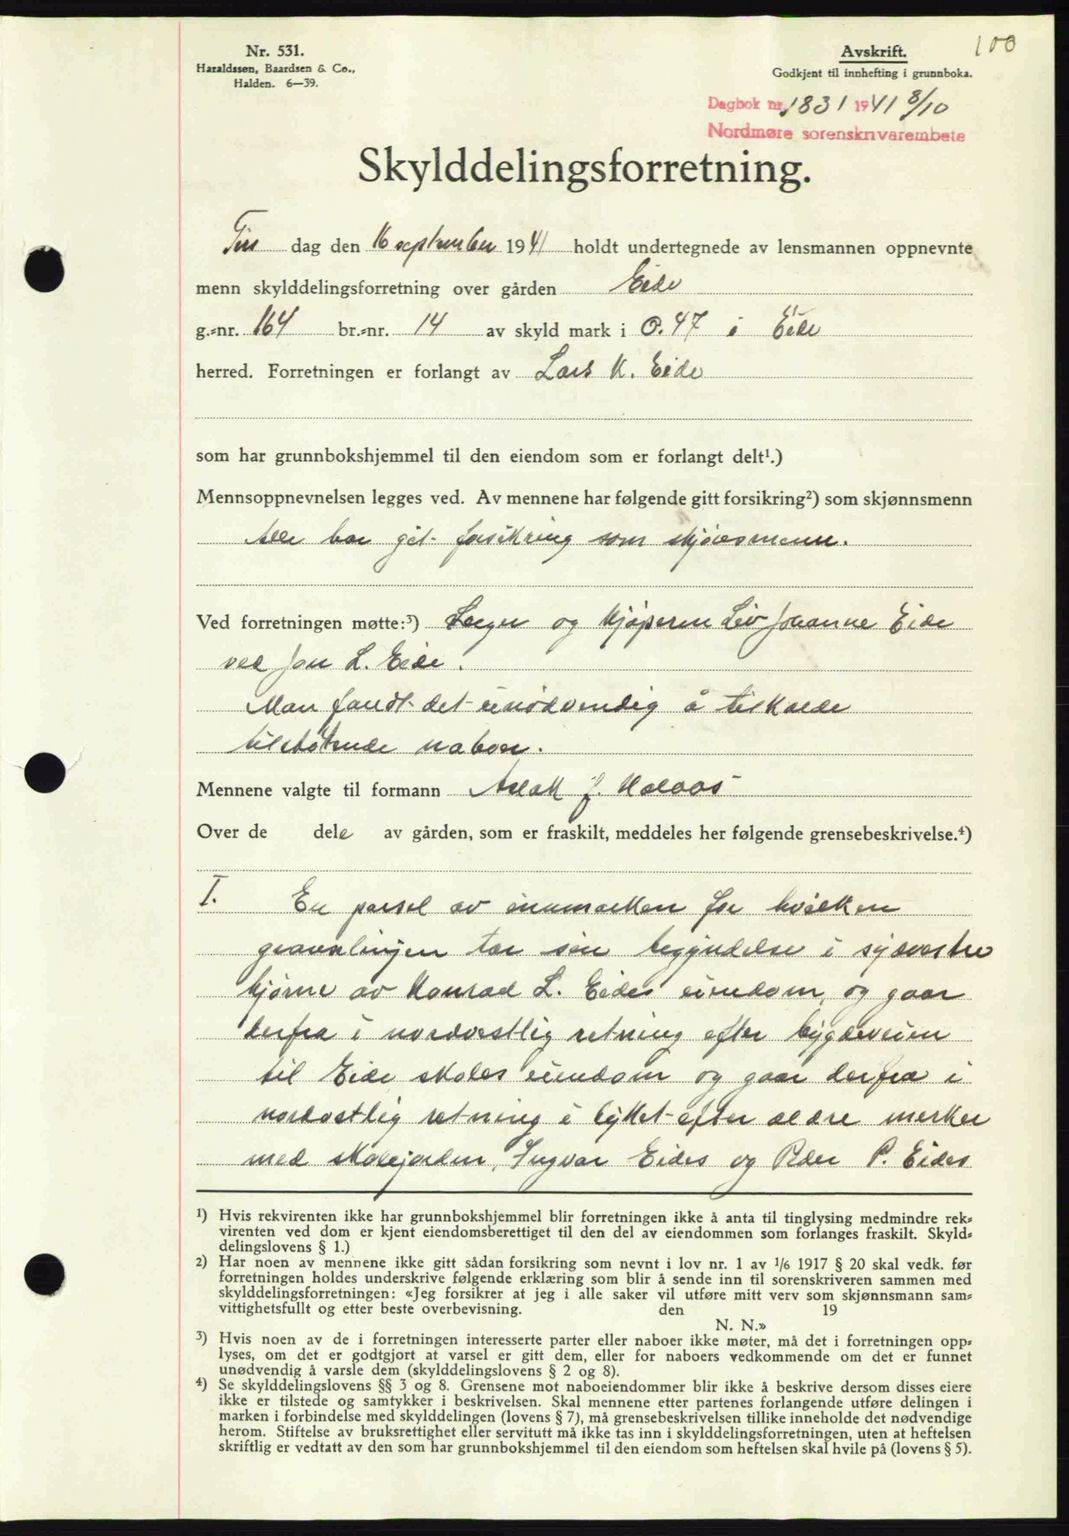 100
Nr. 531.
Haraldssen, Baardsen & Co.,
Halden. 6—39.
Avskrift.
Godkjent til innhefting i grunnboka.
Dagbok nr. 1831 1941 8/10
Nordmøre sorenskrivarembete
Skylddelingsforretning.
Tirs dag den 16 september 1941 holdt undertegnede av lensmannen oppnevnte
menn skylddelingsforretning over gården Eide
g.-nr. 164 br.-nr. 14 av skyld mark i 0.47 i Eide
herred. Forretningen er forlangt av Lars K. Eide
som har grunnbokshjemmel til den eiendom som er forlangt delt¹.)
Mennsoppnevnelsen legges ved. Av mennene har følgende gitt forsikring²) som skjønnsmenn
Alle har git forsikring som skjønsmenn.
Ved forretningen møtte:³) Selger og kjøperen Liv Johanne Eide
ved Jon L. Eide.
Man fandt det unødvendig å tilkalde
tilstøtende naboer.
Mennene valgte til formann Aslak J.
Over de dele av gården, som er fraskilt, meddeles her følgende grensebeskrivelse.⁴)
I. En parsel av innmarken for hvilken
grænselinjen tar sin begyndelse i sydvestre
hjørne av Konrad L. Eides eiendom, og gaar
derfra i nordvestlig retning efter bygdeveien
til Eide skoles eiendom og gaar derfra i
nordostlig retning i bytet efter ældre merker
med skolejorden, Ingvar Eides og Peder P. Eides
¹) Hvis rekvirenten ikke har grunnbokshjemmel blir forretningen ikke å anta til tinglysing medmindre rek-
virenten ved dom er kjent eiendomsberettiget til den del av eiendommen som forlanges fraskilt. Skyld-
delingslovens § 1.)
²) Har noen av mennene ikke gitt sådan forsikring som nevnt i lov nr. 1 av 1/6 1917 § 20 skal vedk. før
forretningen holdes underskrive følgende erklæring som blir å sende inn til sorenskriveren sammen med
skylddelingsforretningen: «Jeg forsikrer at jeg i alle saker vil utføre mitt verv som skjønnsmann sam-
vittighetsfullt og etter beste overbevisning. den 19
N. N.»
³) Hvis noen av de i forretningen interesserte parter eller naboer ikke møter, må det i forretningen opp-
lyses, om det er godtgjort at varsel er gitt dem, eller for naboers vedkommende om det er funnet
unødvendig å varsle dem (skylddelingslovens § 2 og 8).
⁴) Se skylddelingslovens §§ 3 og 8. Grensene mot naboeiendommer blir ikke å beskrive dersom disses eiere
ikke er tilstede og samtykker i beskrivelsen. Skal mennene etter partenes forlangende utføre delingen i
marken i forbindelse med skylddelingen (lovens § 7), må grensebeskrivelsen tillike inneholde det nødvendige
herom. Stiftelse av bruksrettighet eller servitutt må ikke tas inn i skylddelingsforretningen, uten at heftelsen
skriftlig er vedtatt av den som har grunnbokshjemmel til den eiendom som heftelsen skal hvile på (lovens § 5).